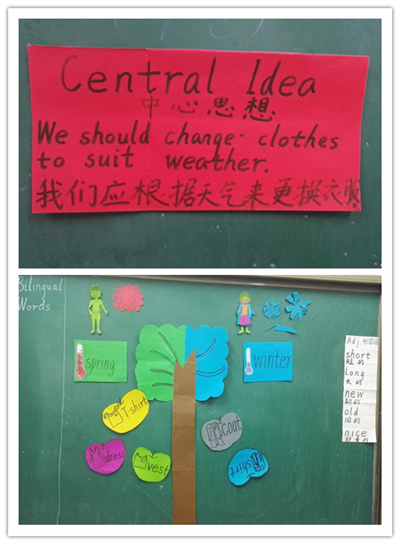 Central Idea
中心思想
We should change clothes
to suit weather.
我们应根据天气来更换衣服
Bilingual
Words
spring
winter
T-shirt
dress
vest
coat
shirt
Adj.
short
短的
long
长的
new
新的
old
旧的
nice